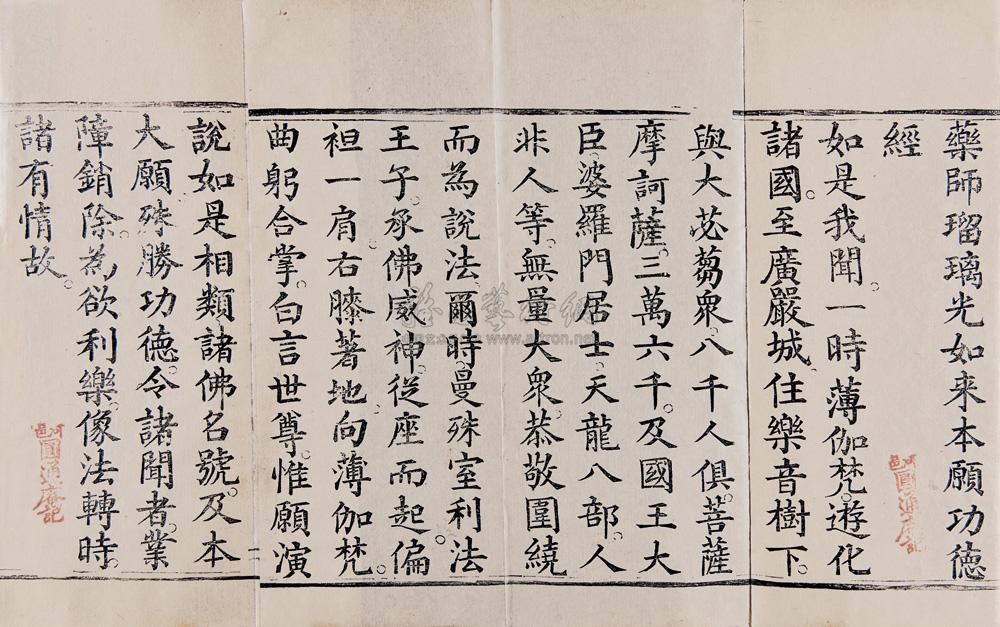 藥師瑠璃光如来本願功德
經
如是我聞。一時薄伽梵。遊化
諸國。至廣嚴城。住樂音樹下。
與大苾蒭衆。八千人俱。菩薩
摩訶薩。三萬六千。及國王大
臣。婆羅門居士。天龍八部。人
非人等。無量大衆。恭敬圍繞
而為說法。爾時曼殊室利法
王子。承佛威神。從座而起。偏
袒一肩。右膝著地。向薄伽梵。
曲躬合掌。白言世尊。惟願演
說如是相類諸佛名號。及本
大願殊勝功德。令諸聞者。業
障銷除。為欲利樂。像法轉時。
諸有情故。